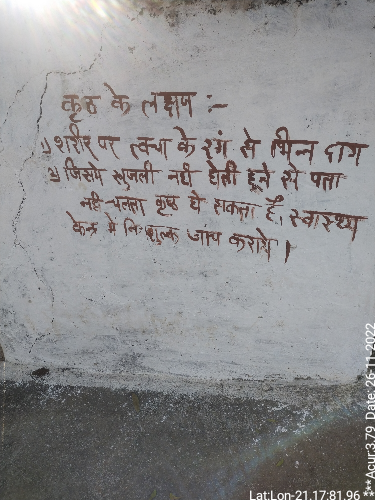 कृष्ठ के लक्षण :-
1) शरीर पर त्वचा के रंग से भिन्न दाग
2) जिसमे खुजली नही होती छूने से पता
नही चलता कृष्ठ ये हो सकता है, स्वास्थ्य
केन्द्र मे निःशुल्क जांच कराये ।
Lat:Lon-21.17:81.96
***Acur:3.79 Date: 26-11-2022